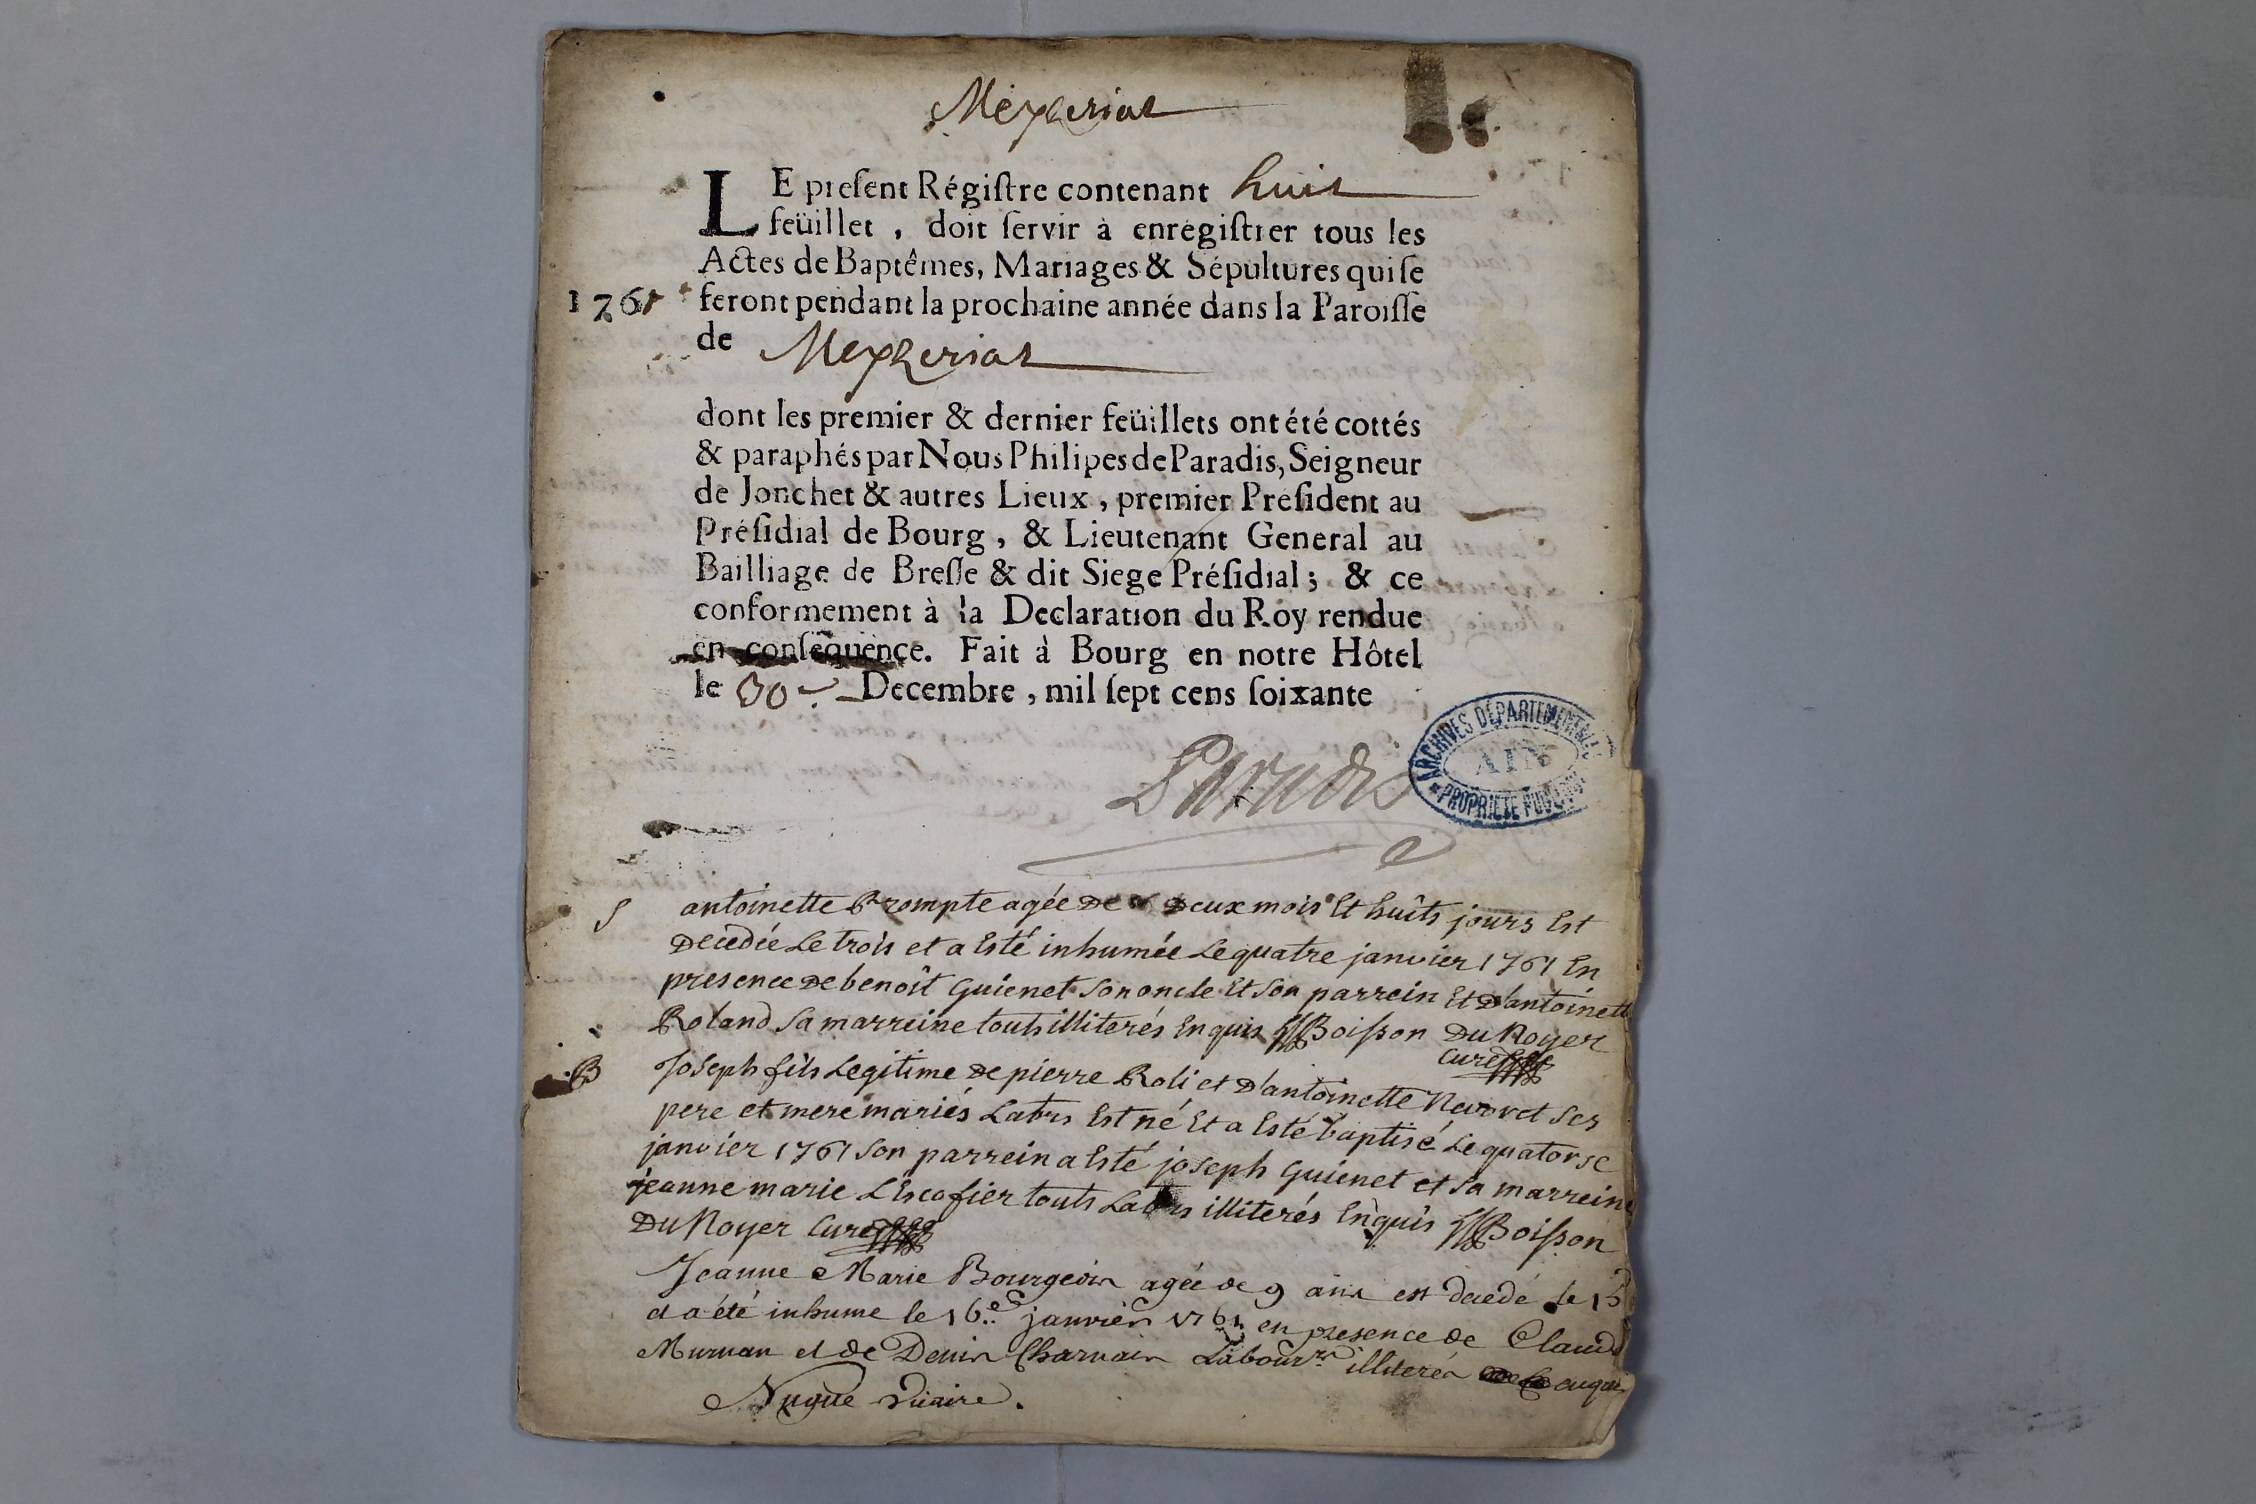 Mezeriat
LE present Régistre contenant huit
feüillet, doit servir à enrégistrer tous les
Actes de Baptêmes, Mariages & Sépultures qui se
1761 feront pendant la prochaine année dans la Paroisse
de Mezeriat
dont les premier & dernier feüillets ont été cottés
& paraphés par Nous Philipes de Paradis, Seigneur
de Jonchet & autres Lieux, premier Président au
Présidial de Bourg, & Lieutenant General au
Bailliage de Bresse & dit Siege Présidial; & ce
conformement à la Declaration du Roy rendue
en conséquence. Fait à Bourg en notre Hôtel
le 30e Decembre, mil sept cens soixante
Paradis
ARCHIVES DÉPARTEMENTALES
AIN
PROPRIÉTÉ PUBLIQUE
S antoinette Prompte agée de deux mois Et huîts jours Est
decedée Le trois et a Esté inhumée Le quatre janvier 1761 En
presence de benoît Guienet Son oncle Et Son parrein Et d'antoinette
Roland Sa marreine touts illiterés Enquis Boisson Du Noyer
Curé
B Joseph fils Legitime de pierre Roli et d'antoinette Ses
pere et mere mariés Labrs Est né Et a Esté baptisé Le quatorse
janvier 1761 Son parrein a Esté joseph Guienet et Sa marreine
jeanne marie L'Escofier touts Labrs illiterés Enquis Boisson
Du Noyer Curé
Jeanne Marie Bourgeois agée de 9 ans est decedé le 15
et a été inhume le 16e janvier 1761 en presence de Claude
et de Denis Charvain Labourrs illiterés enquis
Nugue Viaire.